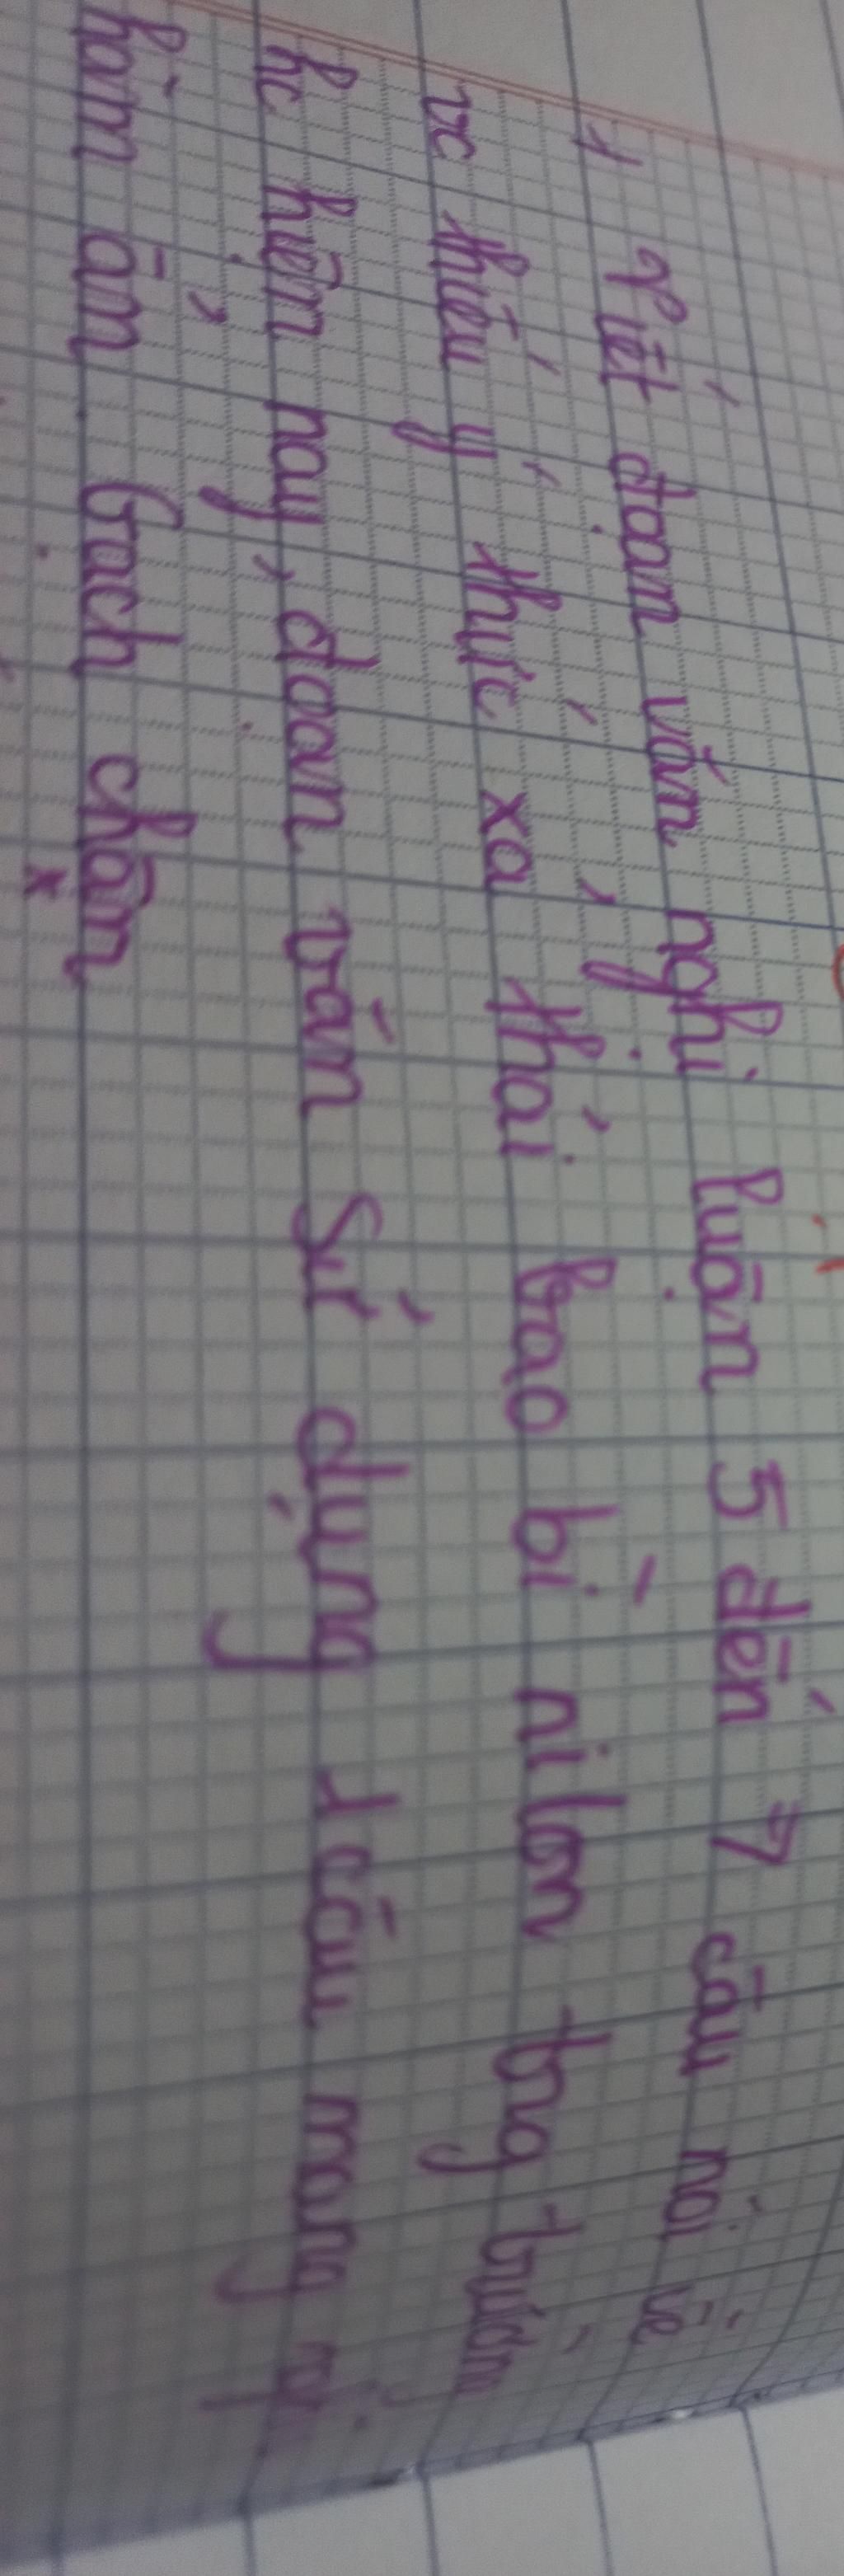 Viết đoạn văn nghị luận 5 đến 7 câu nói về
vc thiếu ý thức xả thải bao bì ni lon trg trườn
hc hiện nay, đoạn văn Sử dụng 1 câu mang
hàm ẩn. Gạch chân